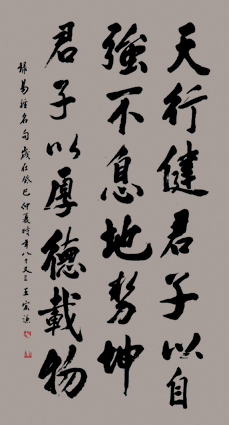 天行健君子以自
強不息地勢坤
君子以厚德載物
錄易經名句歲在癸巳仲夏時年八十又三王宗漁